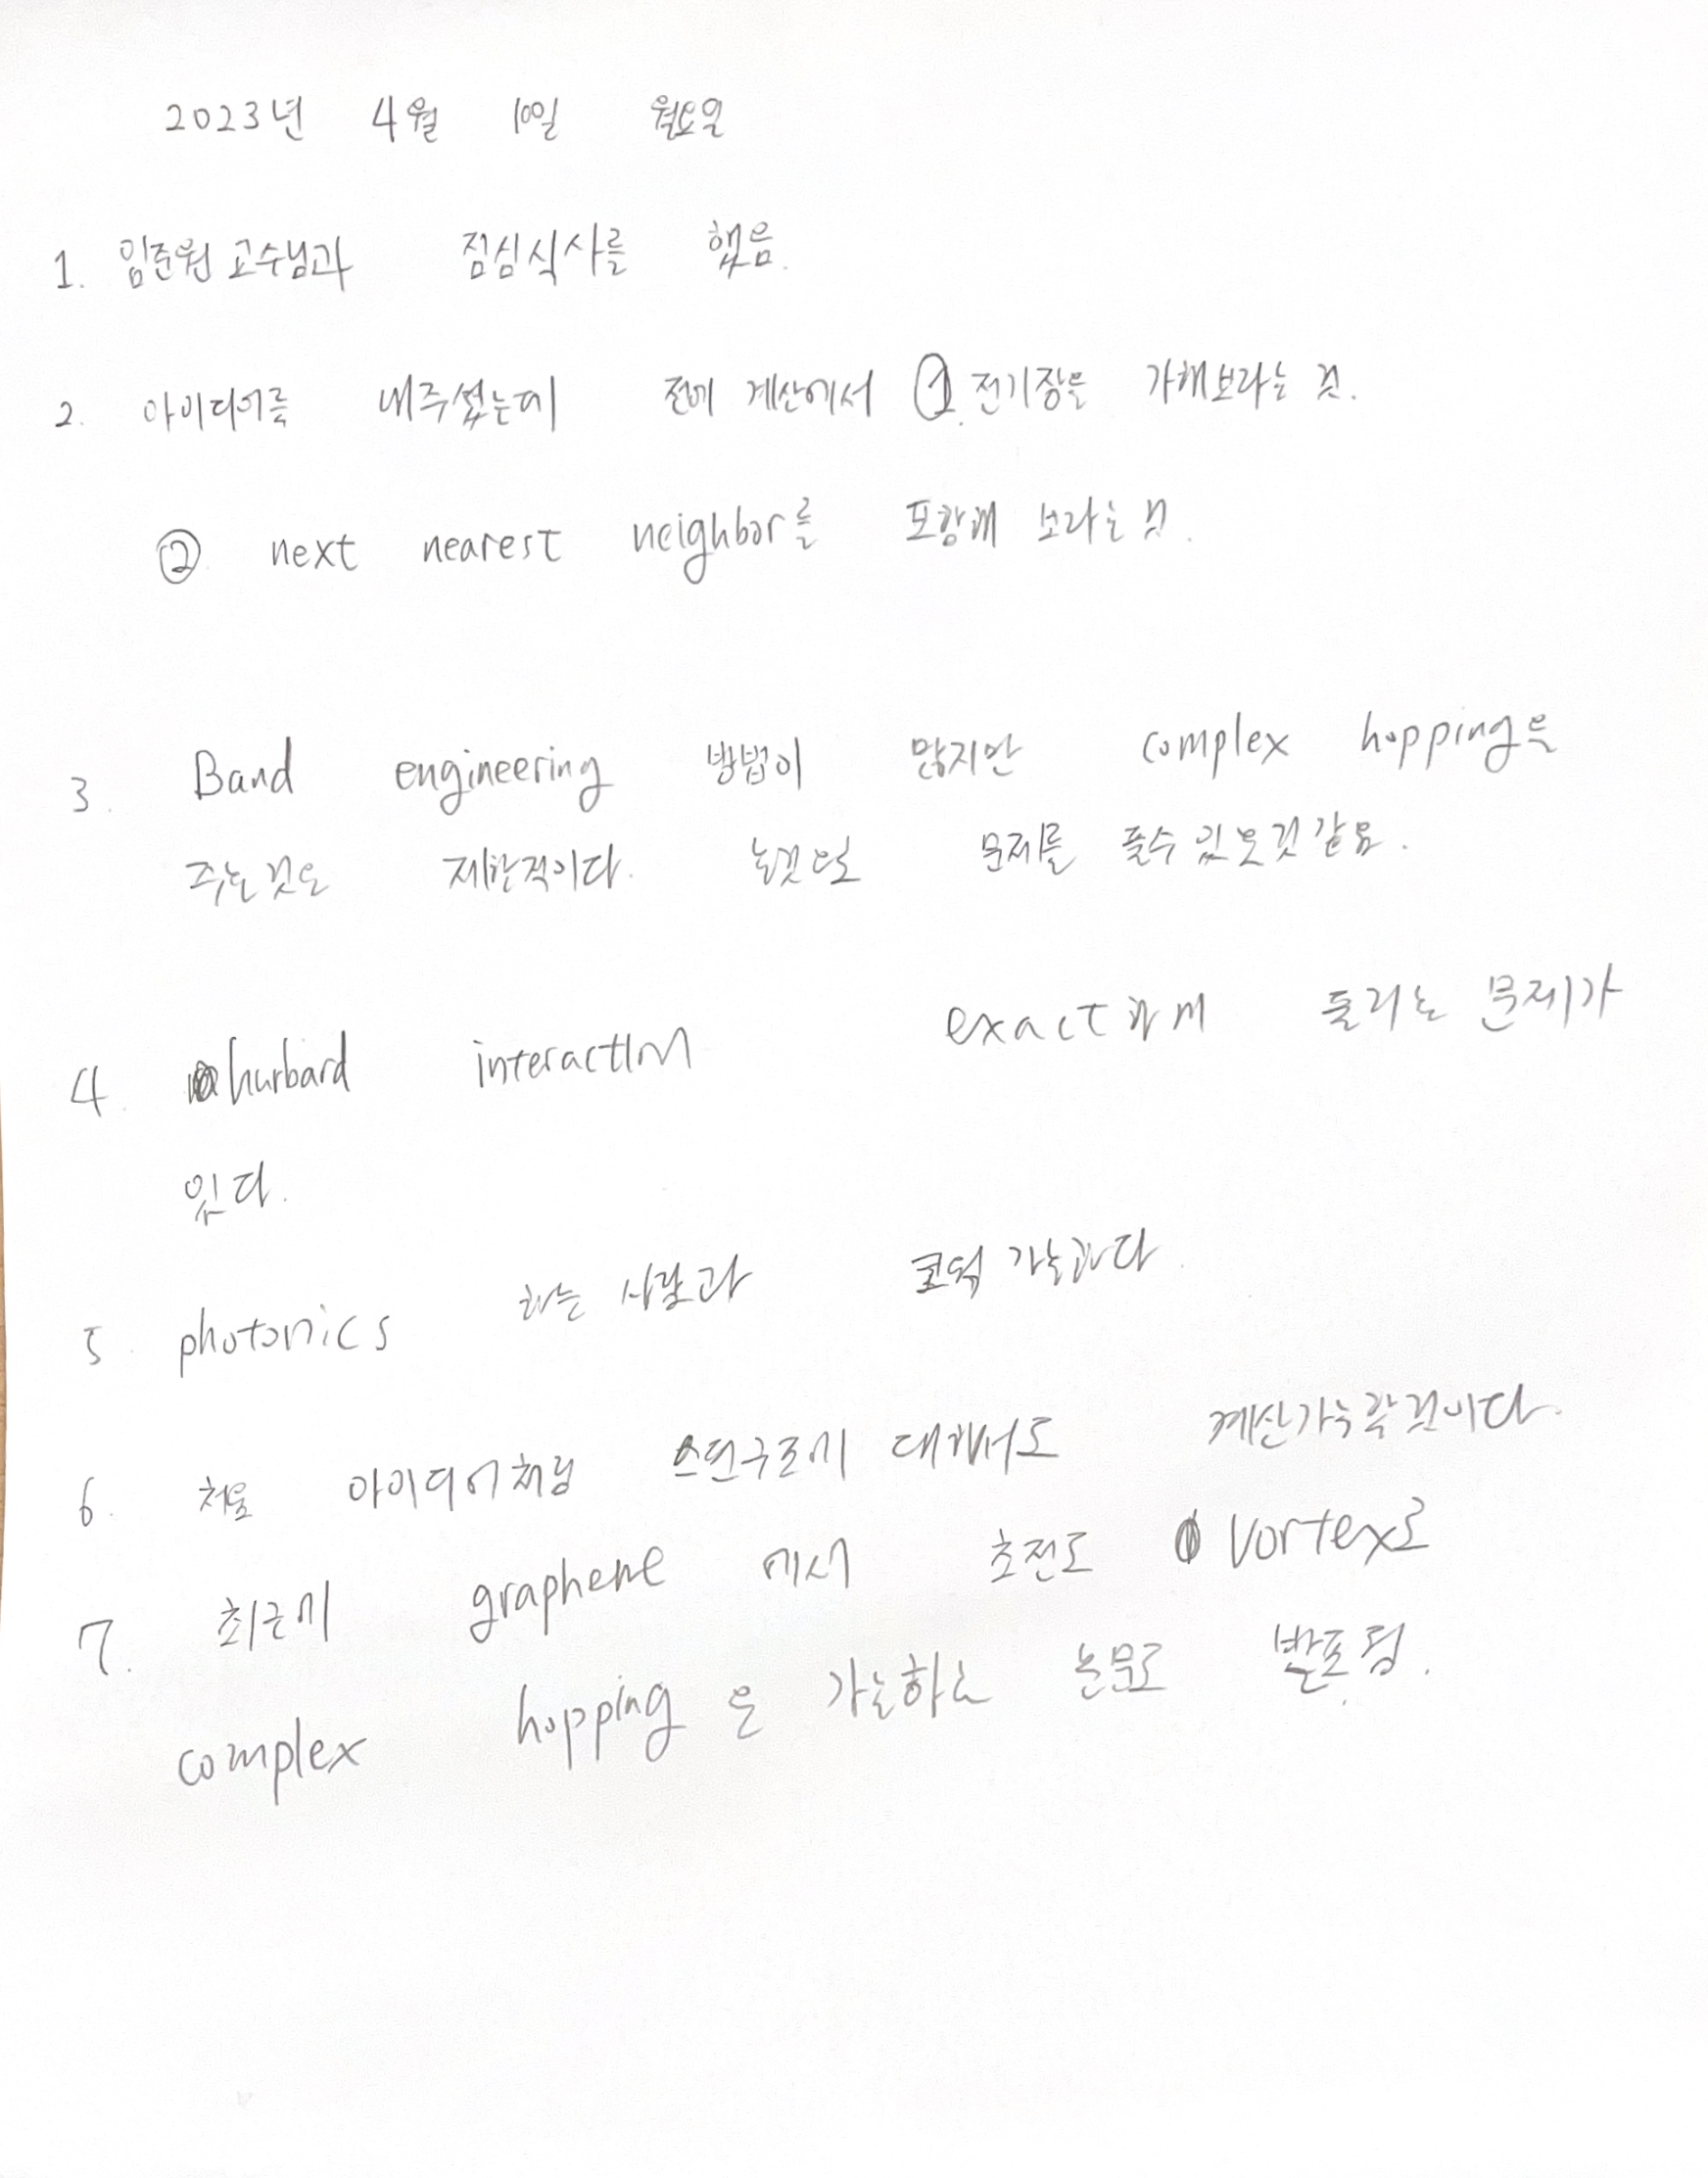 2023년 4월 10일 월요일
1. 임준원 교수님과 점심식사를 했음.
2. 아이디어를 내주셨는데 전에 계산에서 ① 전기장을 가해보라는 것.
② next nearest neighbor를 포함해 보라는 것.
3. Band engineering 방법이 많지만 complex hopping을
주는것은 제한적이다. 문제를 풀수있는것같음.
4. hurbard interaction exact하게 풀리는 문제가
있다.
5 photonics 하는 사람과 코웍 가능하다.
6. 처음 아이디어처럼 스핀구조에 대해서도 계산가능할것이다.
7. 최근에 graphene 에서 초전도 vortex로
complex hopping 을 가능하는 논문도 발표됨.